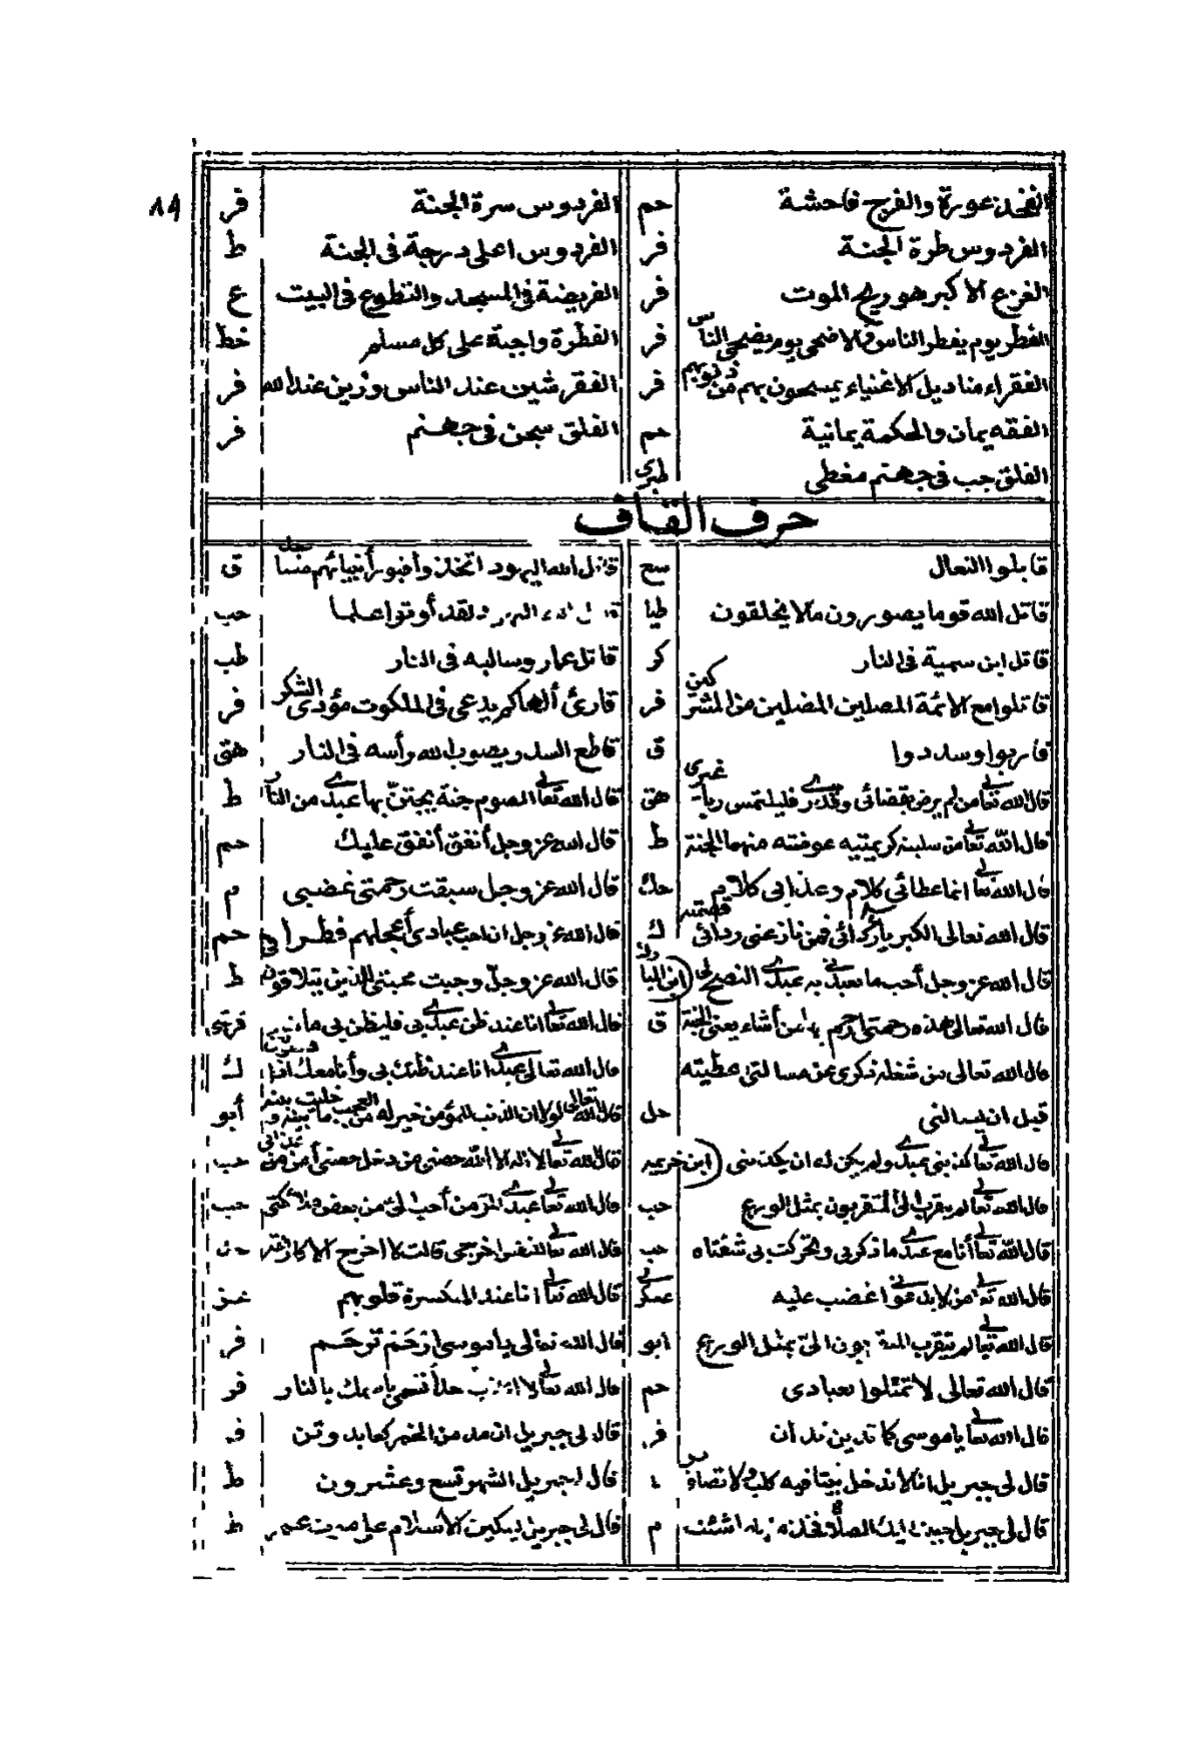 ٨٩
الفخذ عورة والفرج فاحشة حم الفردوس سرة الجنة فر
الفردوس طرة الجنة فر الفردوس اعلى درجة فى الجنة ط
الفزع الاكبر هو ريح الموت فر الفريضة فى المسجد والتطوع فى البيت ع
الفطر يوم يفطر الناس والاضحى يوم يضحى الناس فر الفطرة واجبة على كل مسلم خط
الفقراء مناديل الاغنياء يمسحون بهم من ذنوبهم فر الفقر شين عند الناس وزين عند الله فر
الفقه يمان والحكمة يمانية حم الفلق سجن فى جهنم فر
الفلق جب فى جهنم مغطى طبرى
حرف القاف
قابلوا النعال سع قاتل الله اليهود اتخذوا قبور أنبيائهم ق
قاتل الله قوما يصورون مالا يخلقون طيا لقد أوتوا علما حب
قاتل ابن سمية فى النار كر قاتل عمار وسالبه فى النار طب
قاتلوا مع الائمة المصلين المضلين من المشركين فر قارئ ألهاكم يدعى فى الملكوت مؤدى الشكر فر
قاربوا وسددوا ق قاطع السدر يصوب الله رأسه فى النار هق
قال الله تعالى من لم يرض بقضائى وقدرى فليلتمس ربا غيرى هق قال الله تعالى الصوم جنة يجتن بها عبدى من النار ط
قال الله تعالى من سلبته كريمتيه عوضته منهما الجنة ط قال الله عز وجل أنفق أنفق عليك حم
قال الله تعالى انما عطائى كلام وعذابى كلام قال الله عز وجل سبقت رحمتى غضبى م
قال الله تعالى الكبرياء ردائى فمن نازعنى ردائى قصمته ك قال الله عز وجل ان احب عبادى أعجلهم فطرا حم
قال الله عز وجل أحب ما تعبدنى به عبدى النصح لى قال الله عز وجل وجبت محبتى للذين يتلاقون ط
قال الله تعالى هذه رحمتى ارحم بها من أشاء يعنى الجنة ق قال الله تعالى انا عند ظن عبدى بى فليظن بى ما
قال الله تعالى من شغله ذكرى عن مسالتى عطيته قال الله تعالى عبدى انا عند ظنك بى وأنا معك اذا ك
قبل ان يسالنى حل قال الله تعالى لولا ان الذنب للمؤمن خير له من العجب ما خليت بينه أبو
قال الله تعالى كذبنى عبدى ولم يكن له ان يكذبنى (ابن خزيمه قال الله تعالى لا اله الا الله حصنى من دخل حصنى أمن من عذابى
قال الله تعالى لم يتقرب الى المتقربون بمثل الورع حب قال الله تعالى عبدى المؤمن أحب الى من بعض ملائكتى حب
قال الله تعالى أنا مع عبدى ما ذكرنى وتحركت بى شفتاه حب قال الله تعالى للنفس اخرجى قالت لا اخرج الا كارهة
قال الله تعالى من لا يدعونى اغضب عليه عسكرى قال الله تعالى انا عند المنكسرة قلوبهم
قال الله تعالى لم يتقرب الى بمثل الورع ابو قال الله تعالى يا موسى ارحم ترحم فر
قال الله تعالى لا تمثلوا بعبادى حم قال الله تعالى لا بالنار فر
قال الله تعالى يا موسى كما تدين تدان فر قال لى جبريل ان مدمن الخمر كعابد وثن
قال لى جبريل انا لا ندخل بيتا فيه كلب ولا تصاوير قال لى جبريل الشهر تسع وعشرون ط
قال لى جبريل حببت اليك الصلاة فخذ منها ما شئت م قال لى جبريل ليبكين الاسلام على موت عمر ط